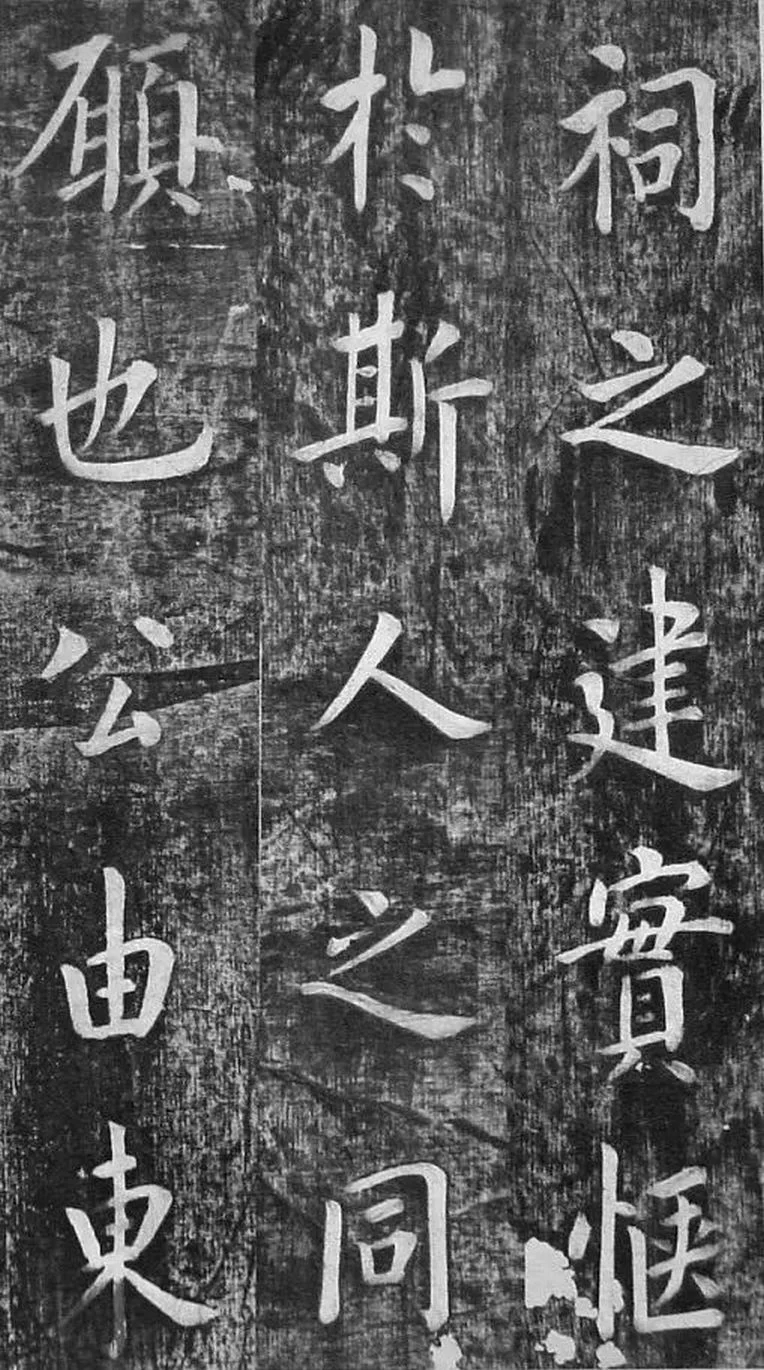 祠之建實惬
於斯人之同
願也公由東